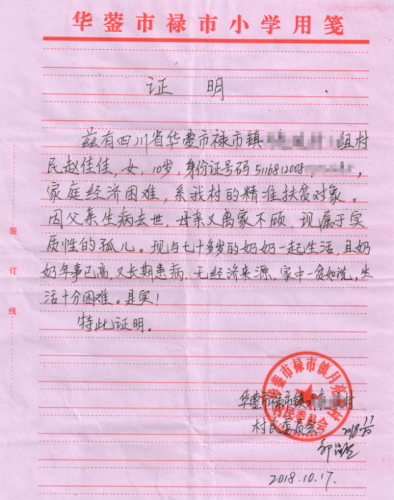 华蓥市禄市小学用笺
证 明
兹有四川省华蓥市禄市镇 组村
民赵佳佳，女，10岁，身份证号码5116812008
家庭经济困难，系我村的精准扶贫对象。
因父亲生病去世，母亲又离家不顾，现属于实
质性的孤儿。现与七十多岁的奶奶一起生活，且奶
奶年事已高，又长期患病，无经济来源、家中一贫如洗，生
活十分困难。是实！
特此证明。
华蓥市禄市镇 村
村民委员会
2018.10.17.
装订线